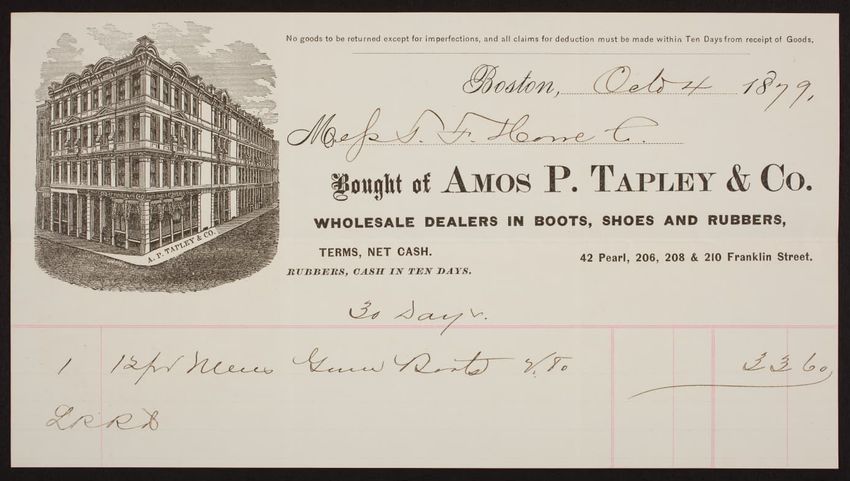 No goods to be returned except for imperfections, and all claims for deduction must be made within Ten Days from receipt of Goods.
Boston, Oct 4 1879.
Mess F. Howe
Bought of AMOS P. TAPLEY & CO.
WHOLESALE DEALERS IN BOOTS, SHOES AND RUBBERS,
TERMS, NET CASH.
42 Pearl, 206, 208 & 210 Franklin Street.
RUBBERS, CASH IN TEN DAYS.
A. P. TAPLEY & CO.
30 Days.
1 12 pr Mens Gum Boots 33 60